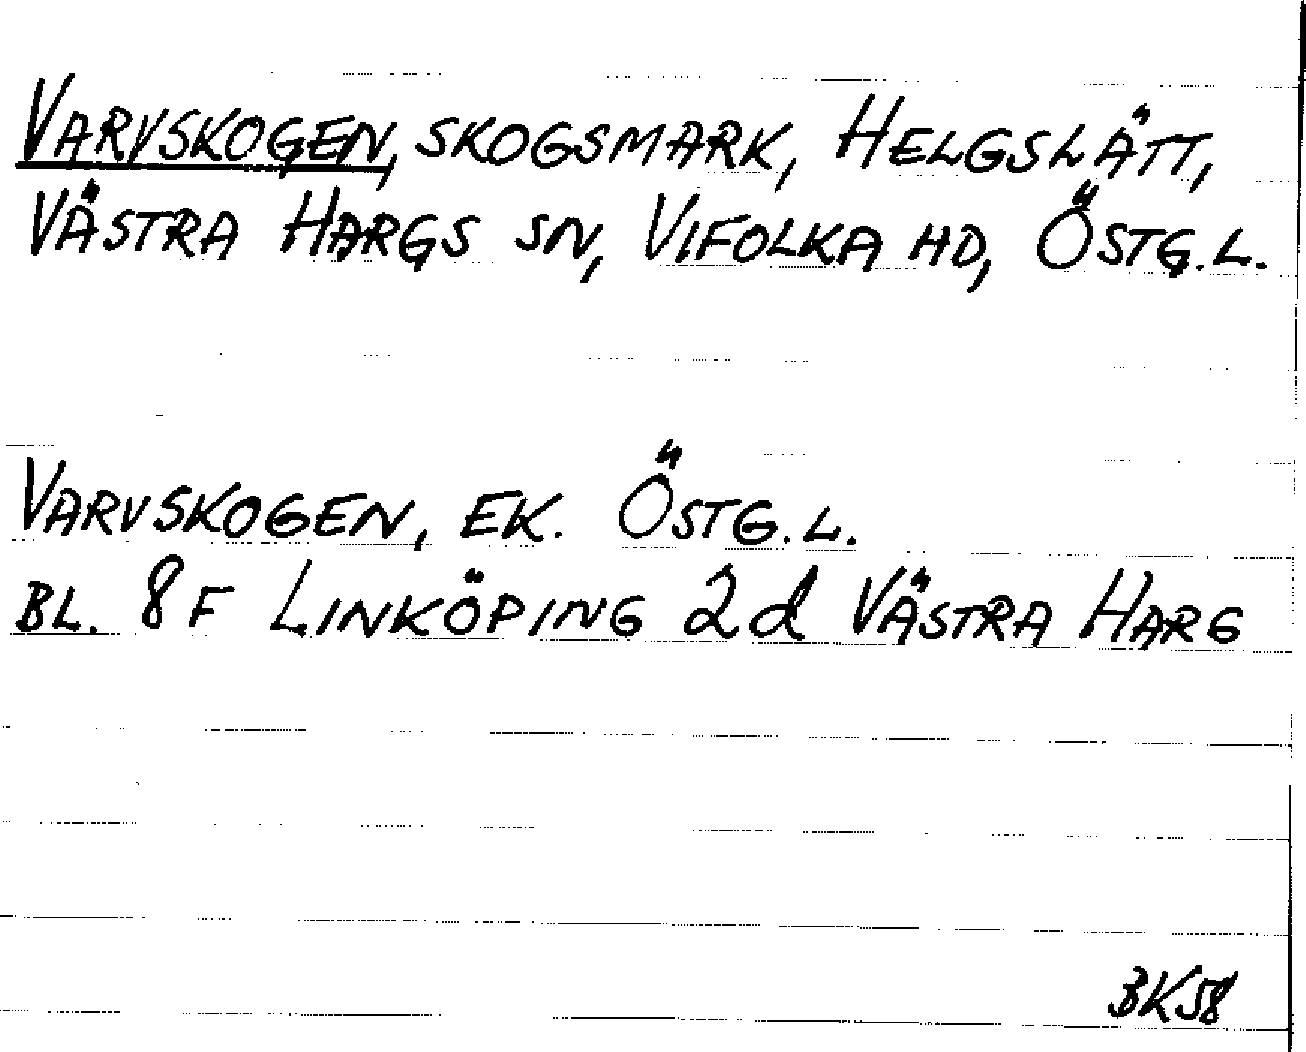 VARVSKOGEN, SKOGSMARK, HELGSLÄTT,
VÄSTRA HARGS SN, VIFOLKA HD, ÖSTG.L.
VARVSKOGEN, EK. ÖSTG.L.
BL. 8F LINKÖPING 2d VÄSTRA HARG
BK58